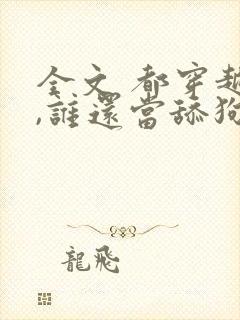 全文 都穿越
,誰還當舔狗
龍飛